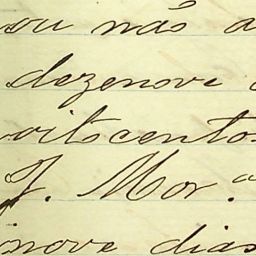 ou não a
dezenove
oitocentos
J. Mor.ª
nove dias